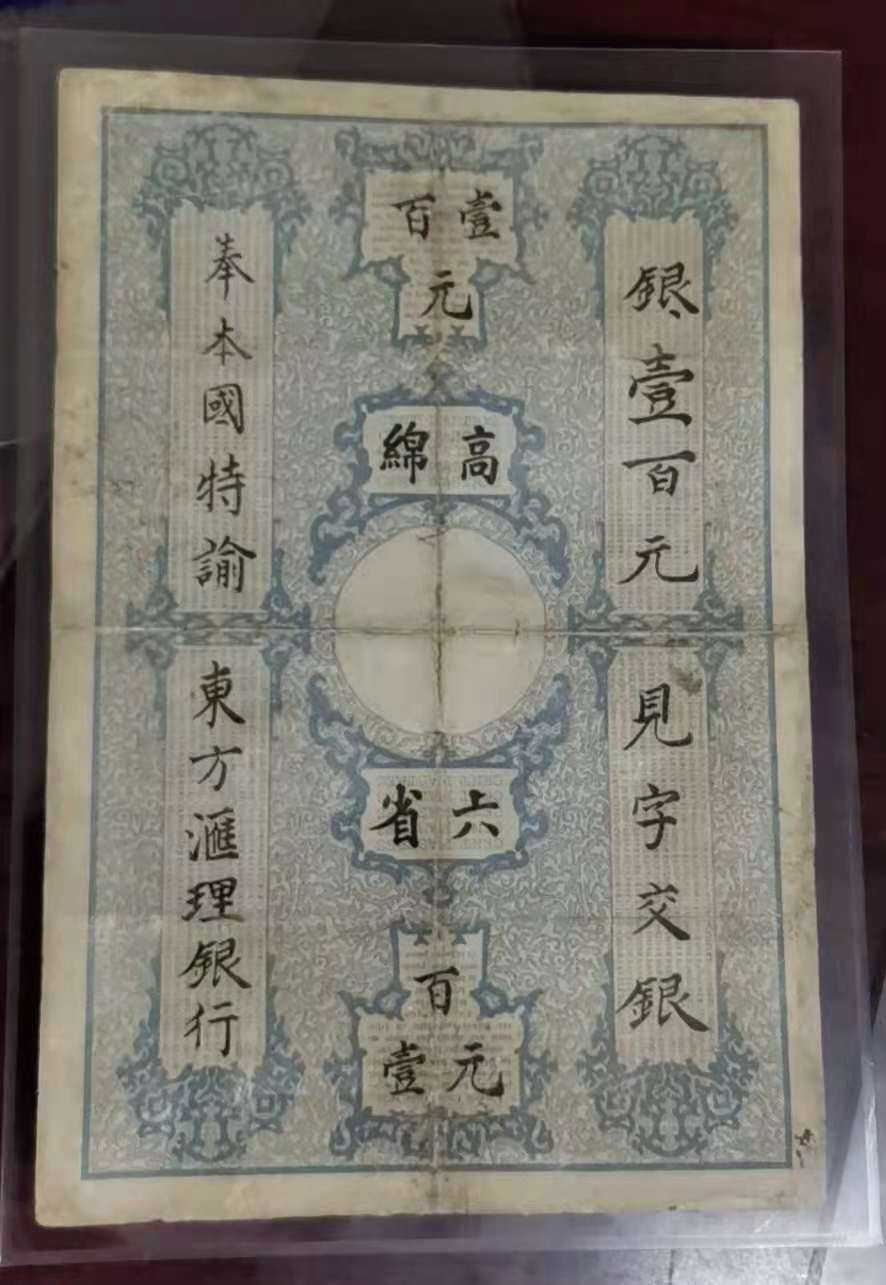 銀壹百元
見字交銀
壹百
元
高綿
六省
百
壹元
奉本國特諭
東方滙理銀行